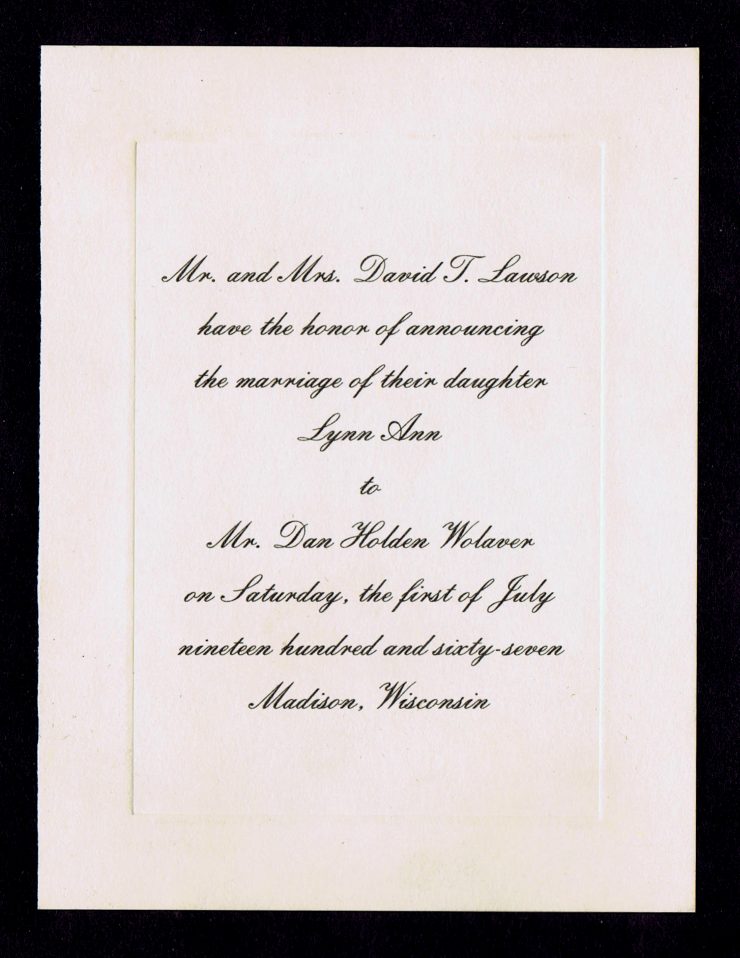 Mr. and Mrs. David T. Lawson
have the honor of announcing
the marriage of their daughter
Lynn Ann
to
Mr. Dan Holden Wolaver
on Saturday, the first of July
nineteen hundred and sixty-seven
Madison, Wisconsin